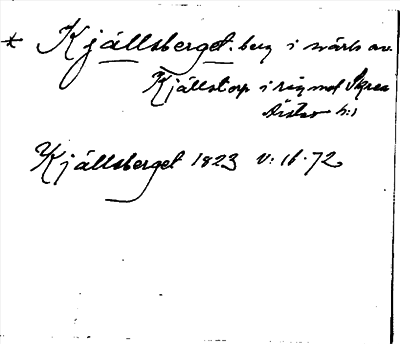 * Kjällsberget. berg i svärds av.
Kjällstorp i rig mot Skrea
Årstad h:d
Kjällsberget 1823 V: 16. 72